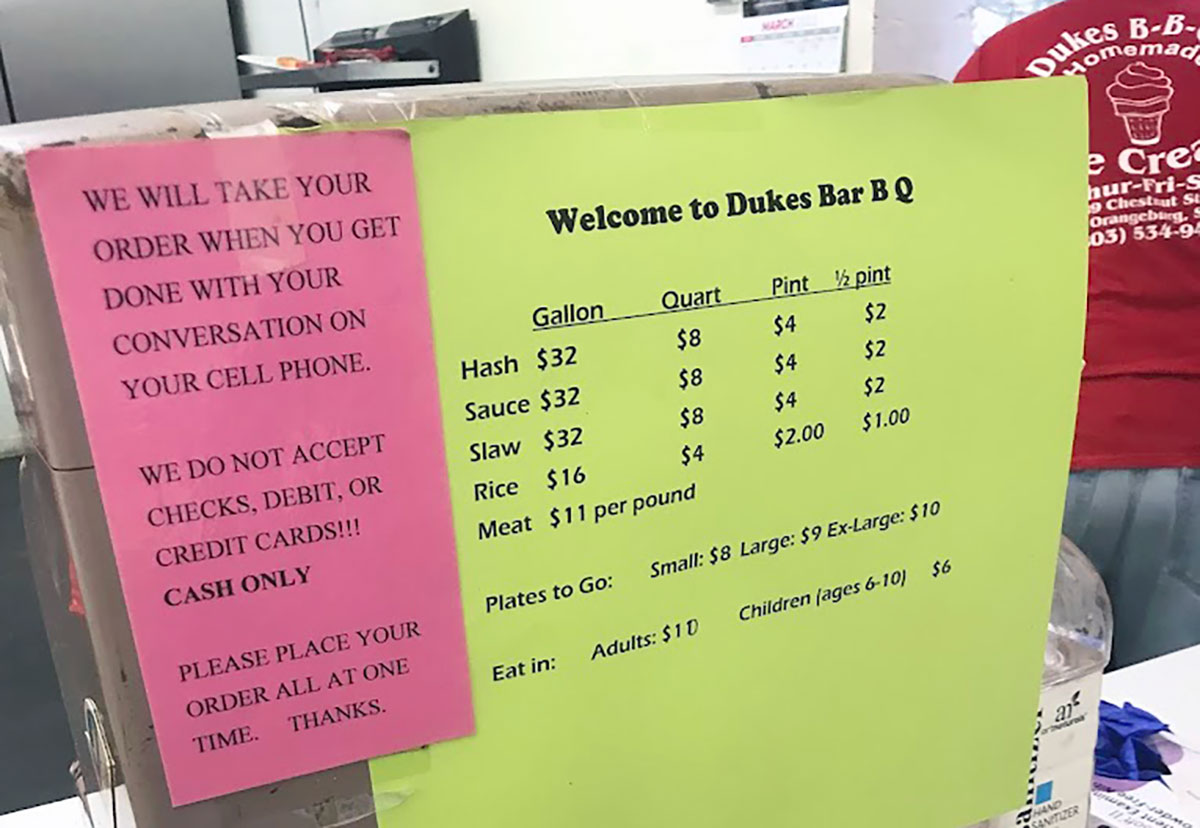 WE WILL TAKE YOUR
ORDER WHEN YOU GET
DONE WITH YOUR
CONVERSATION ON
YOUR CELL PHONE.
WE DO NOT ACCEPT
CHECKS, DEBIT, OR
CREDIT CARDS!!!
CASH ONLY
PLEASE PLACE YOUR
ORDER ALL AT ONE
TIME. THANKS.
Welcome to Dukes Bar B Q
Gallon Quart Pint ½ pint
Hash $32 $8 $4 $2
Sauce $32 $8 $4 $2
Slaw $32 $8 $4 $2
Rice $16 $4 $2.00 $1.00
Meat $11 per pound
Plates to Go: Small: $8 Large: $9 Ex-Large: $10
Eat in: Adults: Children (ages 6-10) $6
MARCH
Dukes B-B-
Homemad
e Crea
hur-Fri-S
9 Chestnut St
Orangeburg,
03) 534-94
HAND
SANITIZER